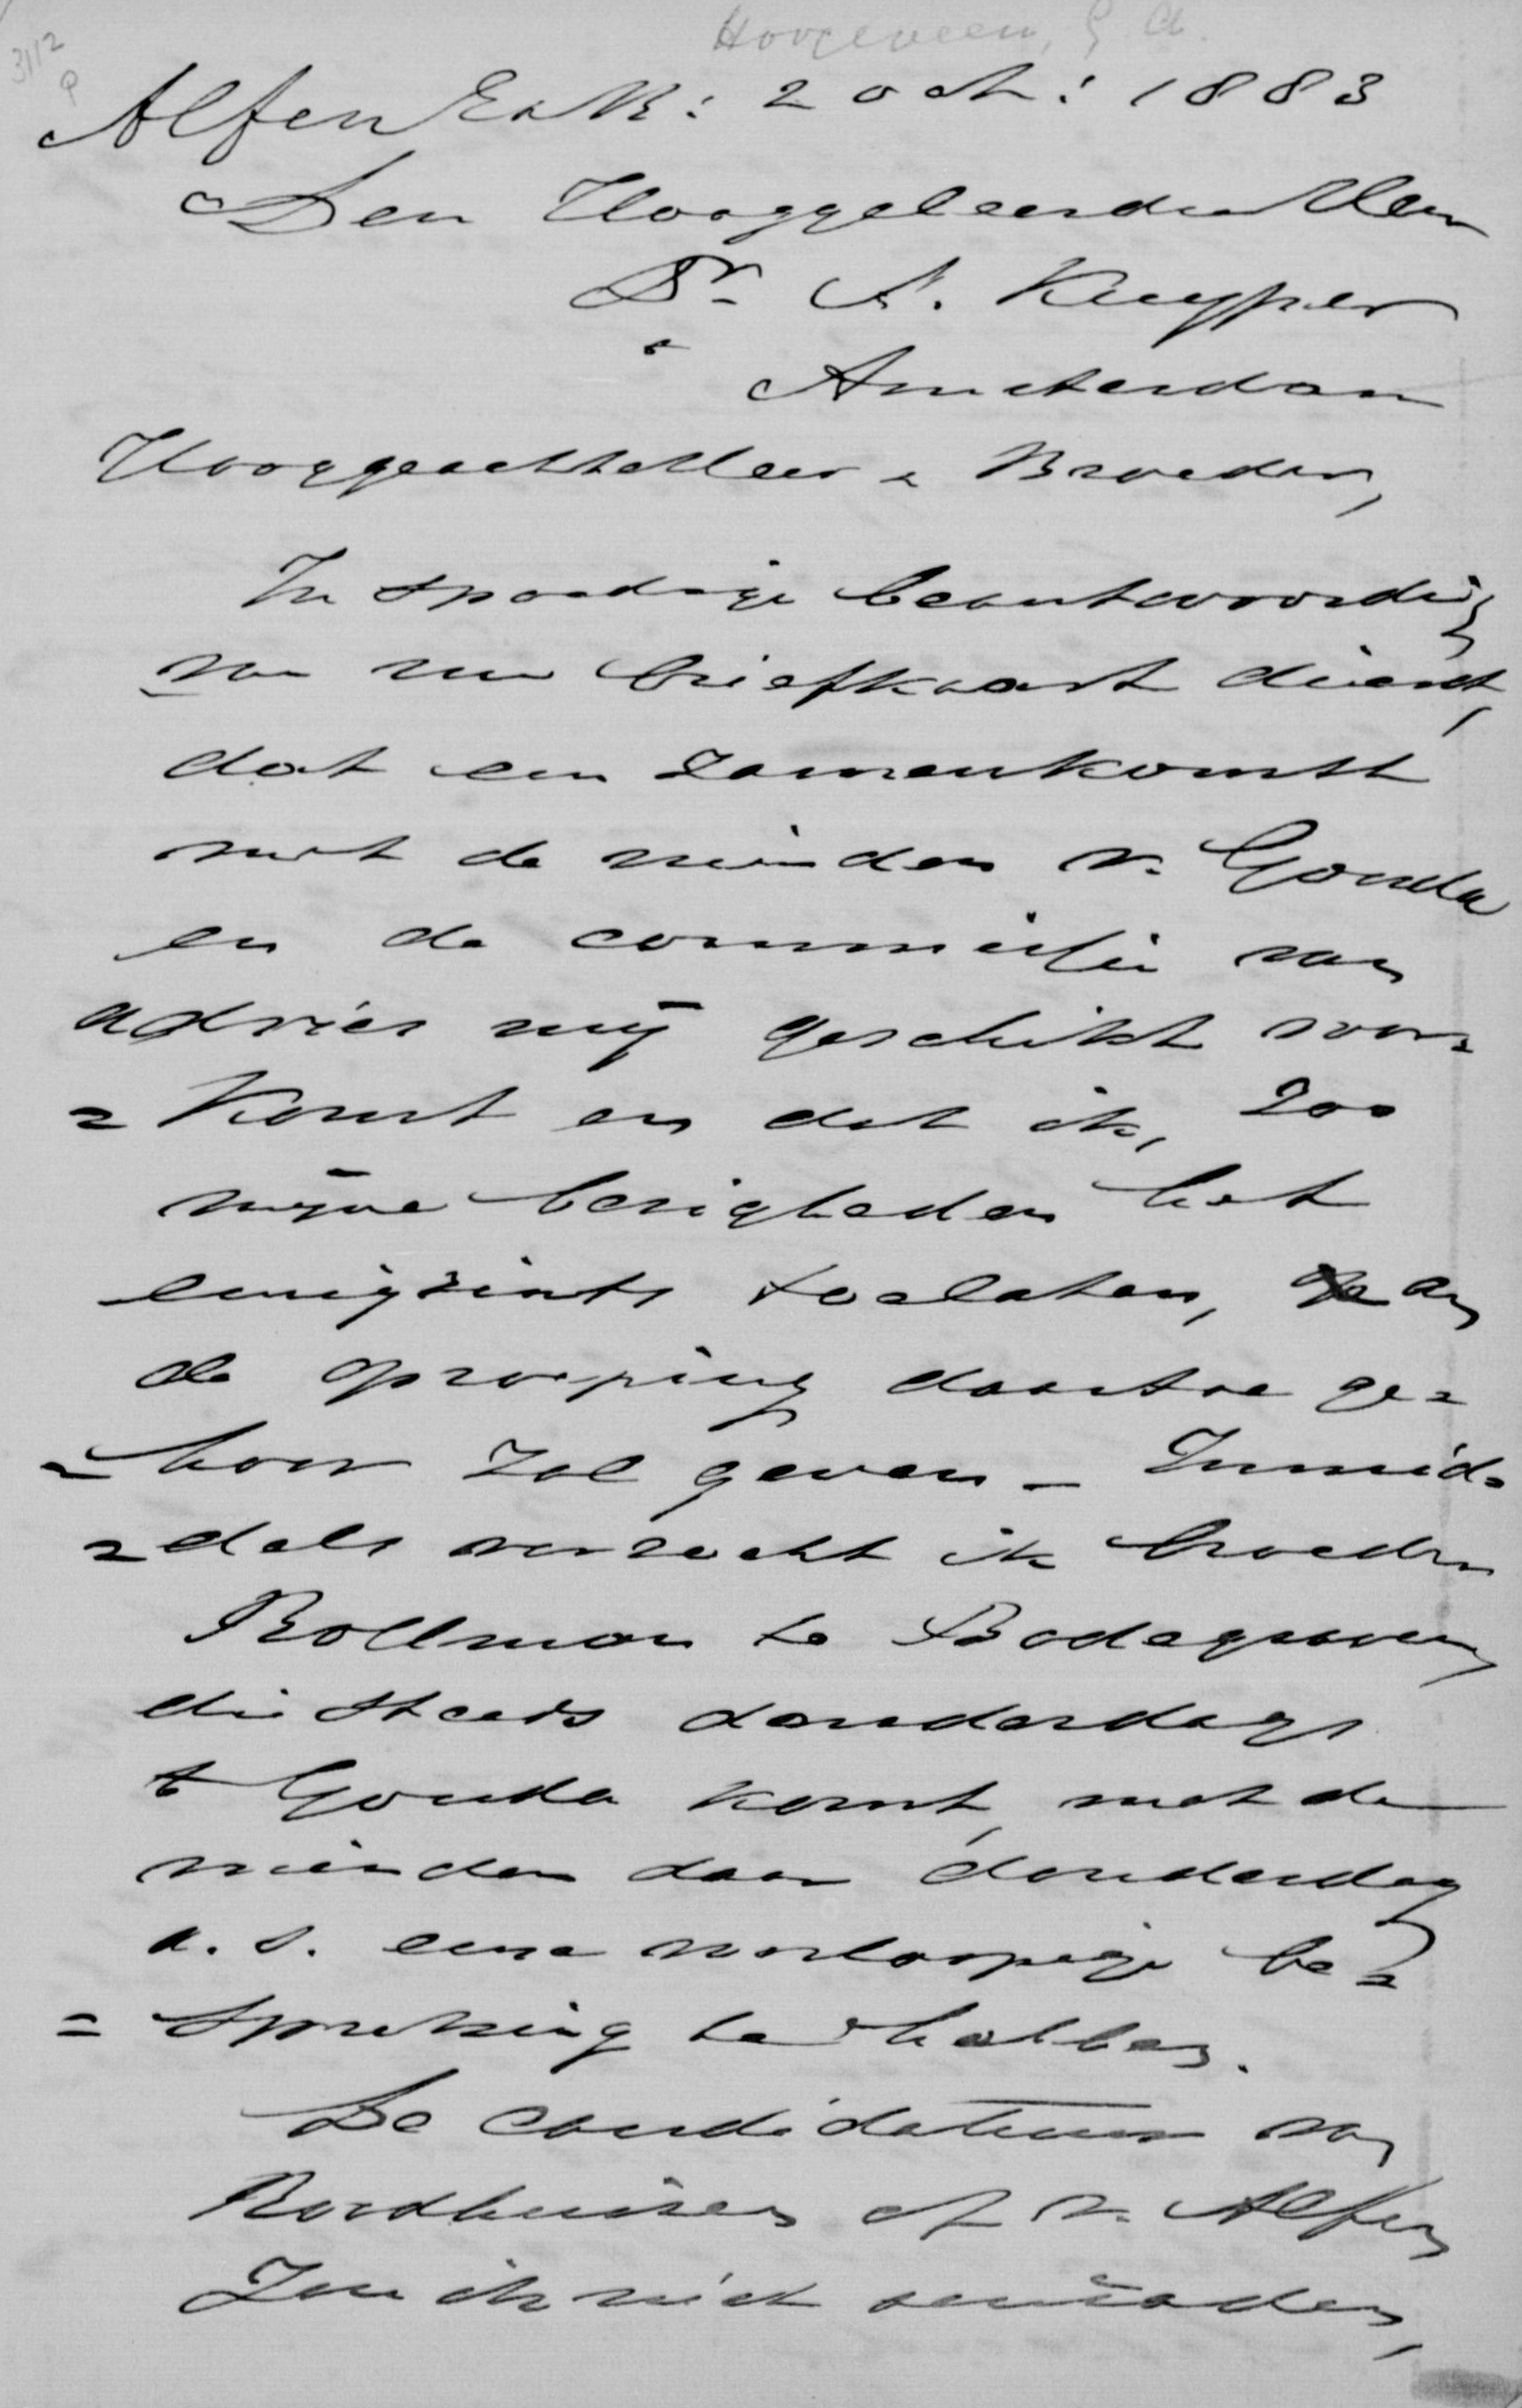 Hoogeveen, G. A.
3112
Alfen 2 oct: 1883
Den Hooggeleerden Heer
Dr. A. Kuyper
Amsterdam
Hooggeachte Heer & Broeder,
In spoedige beantwoording
van uw briefkaart dient,
dat een zamenkomst
met de vrienden v. Gouda
en de commissie van
advies mij geschikt voor=
=komt en dat ik, zoo
mijne bezigheden het
eenigzints toelaten, aan
de oproeping daartoe ge=
=hoor zal geven – Inmid=
=dels verzocht ik broeder
Bollman te Bodegraven
die steeds donderdags
te Gouda komt, met de
vrienden daar donderdag
a. s. eene voorloopige be=
=spreking te hebben.
De candidatuur van
Roodhuizen of v. Alfen
Zou ik niet aanraden,